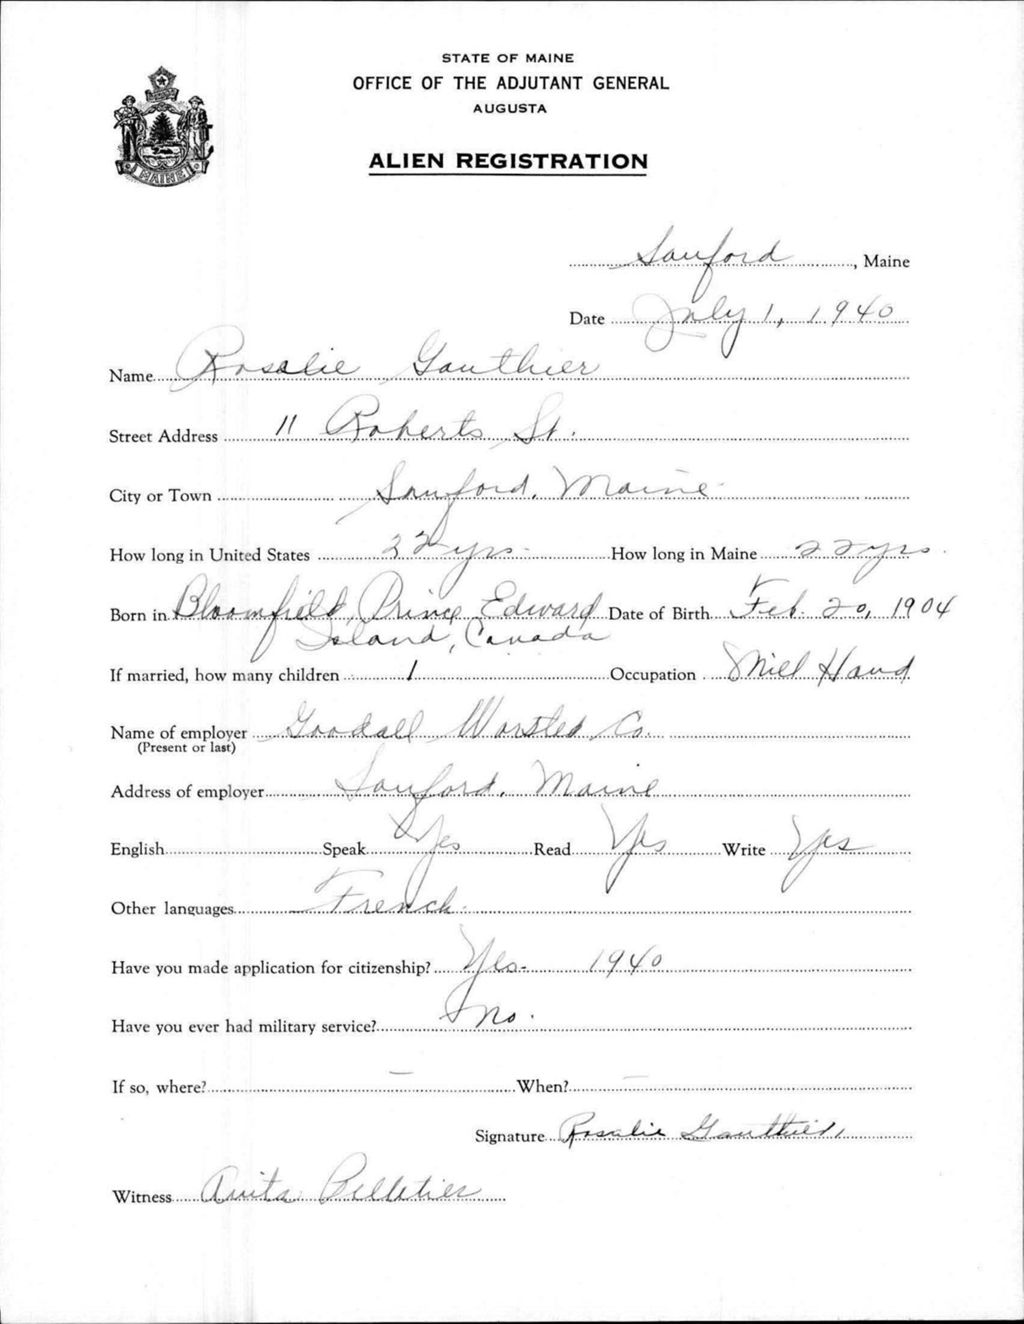 STATE OF MAINE
OFFICE OF THE ADJUTANT GENERAL
AUGUSTA
ALIEN REGISTRATION
MAINE
Sanford, Maine
Date July 1, 1940
Name Rosalie Gauthier
Street Address 11 Roberts St.
City or Town Sanford, Maine
How long in United States 22 yrs. How long in Maine 22 yrs.
Born in Bloomfield, Prince Edward Date of Birth Feb. 20, 1904
Island, Canada
If married, how many children 1 Occupation Mill Hand
Name of employer Goodall Worsted Co.
(Present or last)
Address of employer Sanford, Maine
English Speak Yes Read Yes Write Yes
Other languages French.
Have you made application for citizenship? Yes - 1940
Have you ever had military service? No.
If so, where? — When? —
Signature Rosalie Gauthier
Witness Anita Pelletier